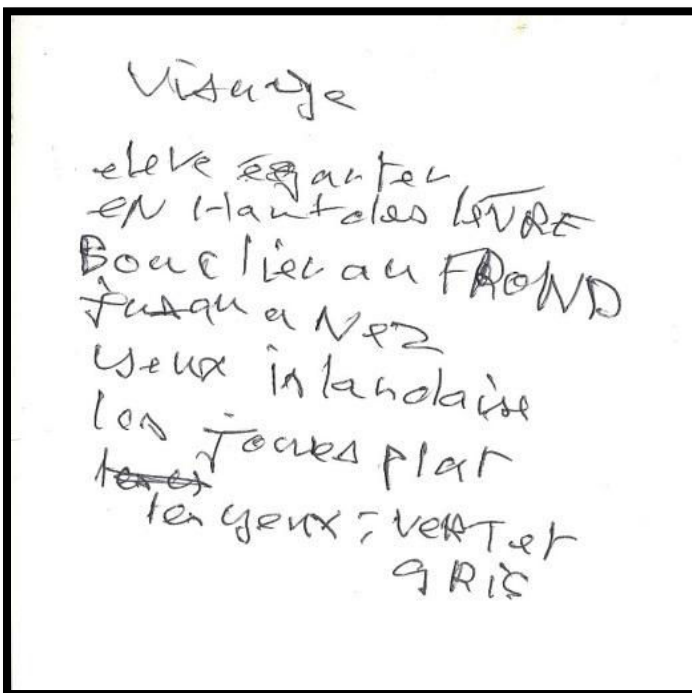 Visauge
eleve eganter
EN Haut des LEVRE
Bouclier au FROND
jusqu a Nez
yeux irlandaise
les joues plat
les yeux : VERT et
GRIS